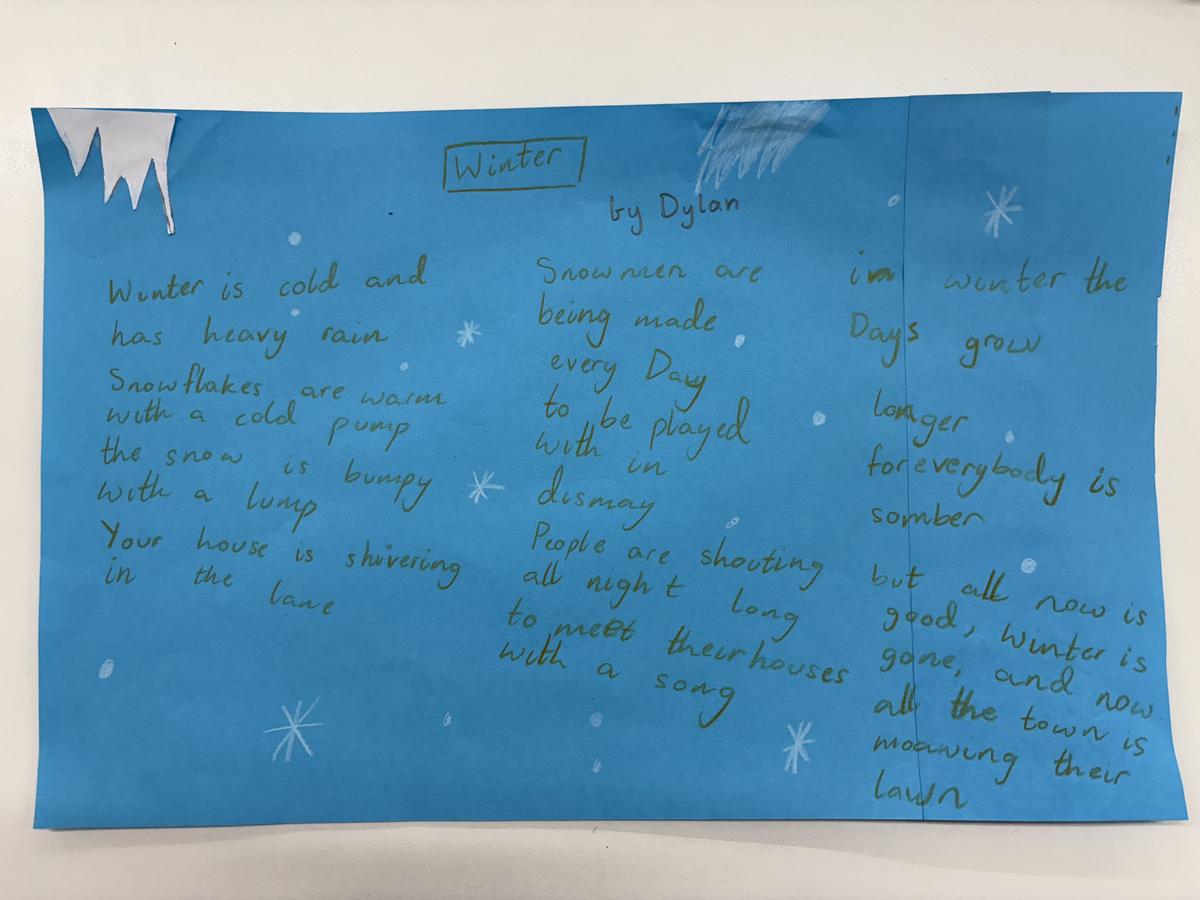 Winter
by Dylan
Winter is cold and
has heavy rain
Snowflakes are warm
with a cold pump
the snow is bumpy
with a lump
Your house is shivering
in the lane
Snowmen are
being made
every Day
to be played
with in
dismay
People are shouting
all night long
to meet their houses
with a song
in winter the
Days grow
longer
for everybody is
somber
but all now is
good, Winter is
gone, and now
all the town is
moawing their
lawn